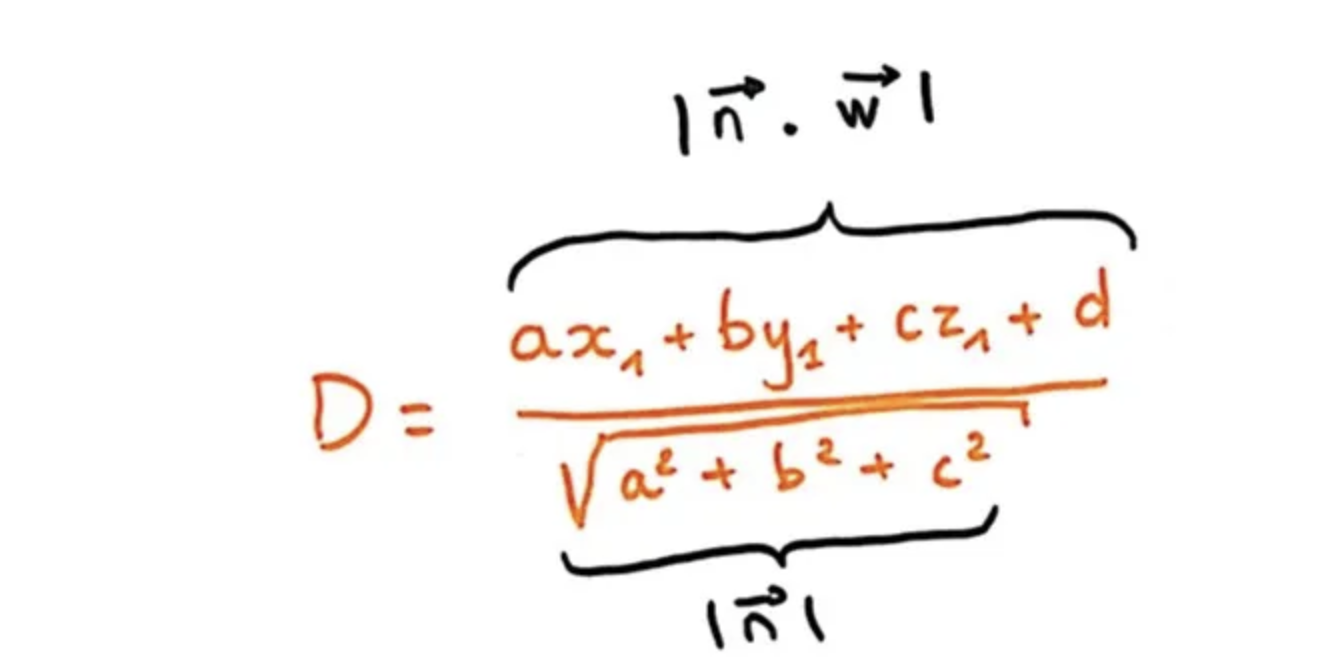 |n⃗ . w⃗|
D = (ax₁ + by₁ + cz₁ + d) / √(a² + b² + c²)
|n⃗|